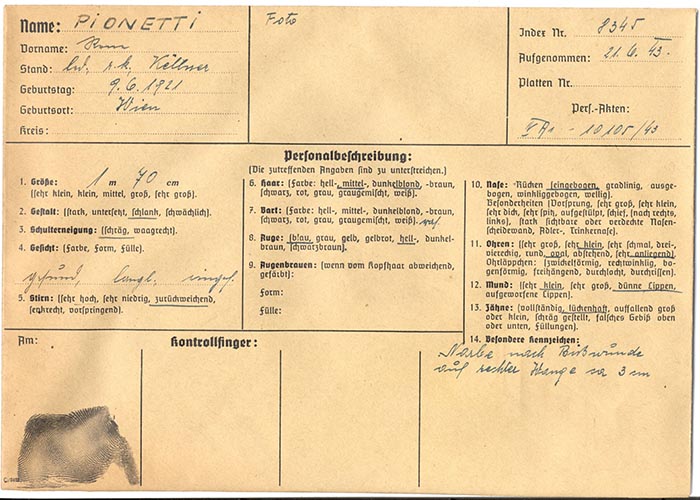 Name: PIONETTI
Vorname:
Stand: led, r.k. Kellner
Geburtstag: 9.6.1921
Geburtsort: Wien
Kreis:
Foto
Index Nr. 8345
Aufgenommen: 21. 6. 43.
Platten Nr.
Pers.-Akten:
10105/43
Personalbeschreibung:
(Die zutreffenden Angaben sind zu unterstreichen.)
1. Größe: 1 m 70 cm
(sehr klein, klein, mittel, groß, sehr groß).
2. Gestalt: (stark, untersetzt, schlank, schwächlich).
3. Schulterneigung: (schräg, waagrecht).
4. Gesicht: (Farbe, Form, Fülle).
gesund, längl.
5. Stirn: (sehr hoch, sehr niedrig, zurückweichend,
senkrecht, vorspringend).
6. Haar: (Farbe: hell-, mittel-, dunkelblond, -braun,
schwarz, rot, grau, graugemischt, weiß).
7. Bart: (Farbe: hell-, mittel-, dunkelblond, -braun,
schwarz, rot, grau, graugemischt, weiß).
8. Auge: (blau, grau, gelb, gelbrot, hell-, dunkel-
braun, schwarzbraun).
9. Augenbrauen: (wenn vom Kopfhaar abweichend,
gefärbt):
Form:
Fülle:
10. Nase: -Rücken (eingebogen, gradlinig, ausge-
bogen, winkliggebogen, wellig).
Besonderheiten (Vorsprung, sehr groß, sehr klein,
sehr dick, sehr spitz, aufgestülpt, schief, (nach rechts,
links), stark sichtbare oder verdeckte Nasen-
scheidewand, Adler-, Trinkernase).
11. Ohren: (sehr groß, sehr klein, sehr schmal, drei-,
viereckig, rund, oval, abstehend, sehr anliegend)
Ohrläppchen: (zwickelförmig, rechtwinklig, bo-
genförmig, freihängend, durchlocht, durchrissen).
12. Mund: (sehr klein, sehr groß, dünne Lippen,
aufgeworfene Lippen).
13. Zähne: (vollständig, lückenhaft, auffallend groß
oder klein, schräg gestellt, falsches Gebiß oben
oder unten, Füllungen).
14. Besondere Kennzeichen:
Narbe nach Bißwunde
auf rechter Wange ca 3 cm
Am:
Kontrollfinger: